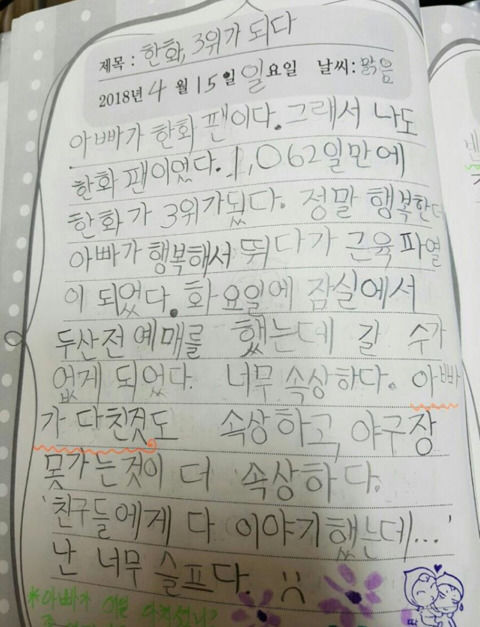 제목: 한화, 3위가 되다
2018년 4월 15일 일요일 날씨: 맑음
아빠가 한화 팬이다. 그래서 나도
한화 팬이였다. 1,062일만에
한화가 3위가됬다. 정말 행복한다
아빠가 행복해서 뛰다가 근육파열
이 되었다. 화요일에 잠실에서
두산전 예매를 했는데 갈 수가
없게 되었다. 너무 속상하다. 아빠
가 다친것도 속상하고, 야구장
못가는것이 더 속상하다.
'친구들에게 다 이야기했는데...'
난 너무 슬프다.
*아빠가